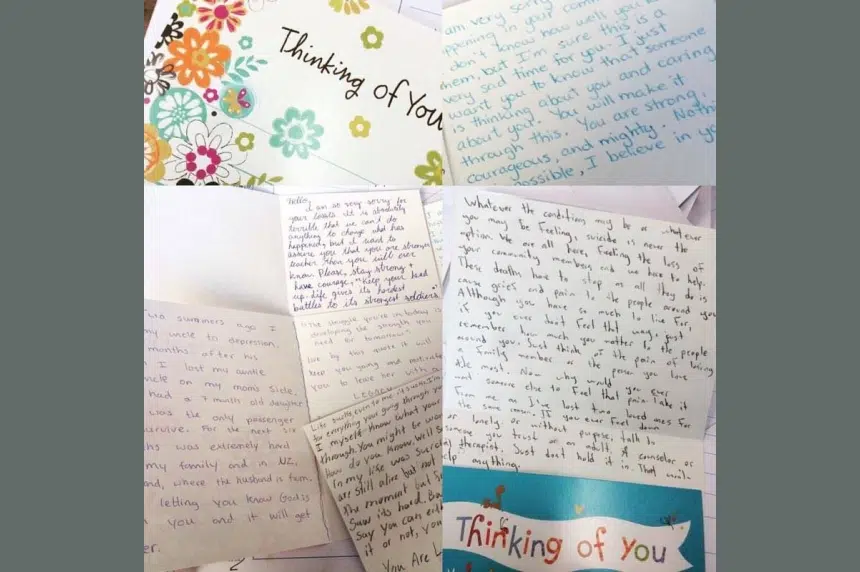 Thinking of You
am very sorry
ppening in your comm
don't know how well you
hem, but I'm sure this is a
very sad time for you. I just
want you to know that someone
is thinking about you and caring
about you. You will make it
through this. You are strong,
courageous, and mighty. Nothi
possible, I believe in yo
hello,
I am so very sorry for
your losses. It is absolutely
terrible that we can't do
anything to change what has
happened, but I want to
assure you that you are stronger
teacher than you will ever
know. Please, stay strong +
have courage, "Keep your head
up. Life gives its hardest
battles to its strongest soldiers."
Two summers ago I
my uncle to depression.
months after his
I lost my auntie
uncle on my mom's side.
had a 7 month old daughter
was the only passenger
survive. For the next six
ths was extremely hard
my family and in NZ,
and, where the husband is from.
letting you know God is
you and it will get
er.
"The struggle you're in today is
developing the strength you
need for tomorrow"
live by this quote it will
keep you going and motivate
you to leave her with a
LEGACY
Life sucks, even to me it sucks. I'm
for everything your going through
I myself know what you
through. You might be won
How do you know. Well
in my life was suicid
are still alive but not
the moment but
Suar its hard. But
Say you can eith
it or not, you
You Are L
Whatever the conditions may be or whatever
you may be feeling, suicide is never the
option. We are all here, feeling the loss of
your community members and we have to help.
These deaths have to stop as all they do is
cause grief and pain to the people around you.
Although you have so much to live for,
if you ever don't feel that way, just
remember how much you matter to the people
around you. Just think of the pain of losing
a family member or the person you love
the most. Now why would you ever
want someone else to feel that pain take it
from me as I've lost loved ones
the same
If you ever feel down
or lonely or without purpose, talk to
someone you trust or an adult. A counselor or
therapist. Just don't hold it in. That won't
help anything.
Thinking of you